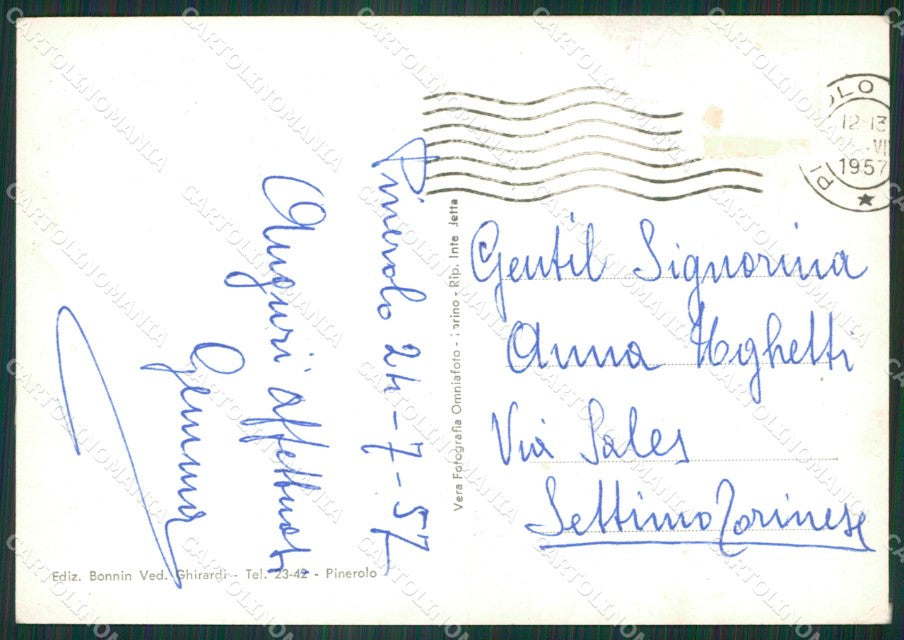 Pinerolo 24-7-57
Auguri affettuosi
Gemma
Gentil Signorina
Anna Ughetti
Via Sales
Settimo Torinese
Vera Fotografia Omniafoto - Torino - Rip. Interdetta
Ediz. Bonnin Ved. Ghirardi - Tel. 23-42 - Pinerolo
LO
12-13
VII
1957
PI
CARTOLINOMANIA